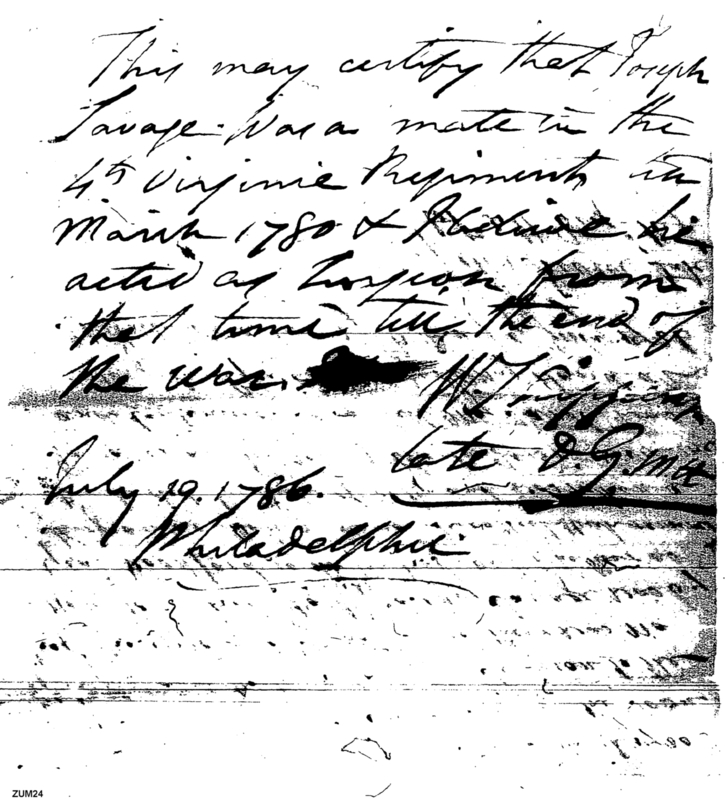 This may certify that Joseph
Savage was a mate in the
4th Virginie Regiment in
March 1780 & I believe he
acted as Surgeon from
that time till the end of
the war.
W Shippen
late D. G. M H
July 19. 1786.
Philadelphie
ZUM24